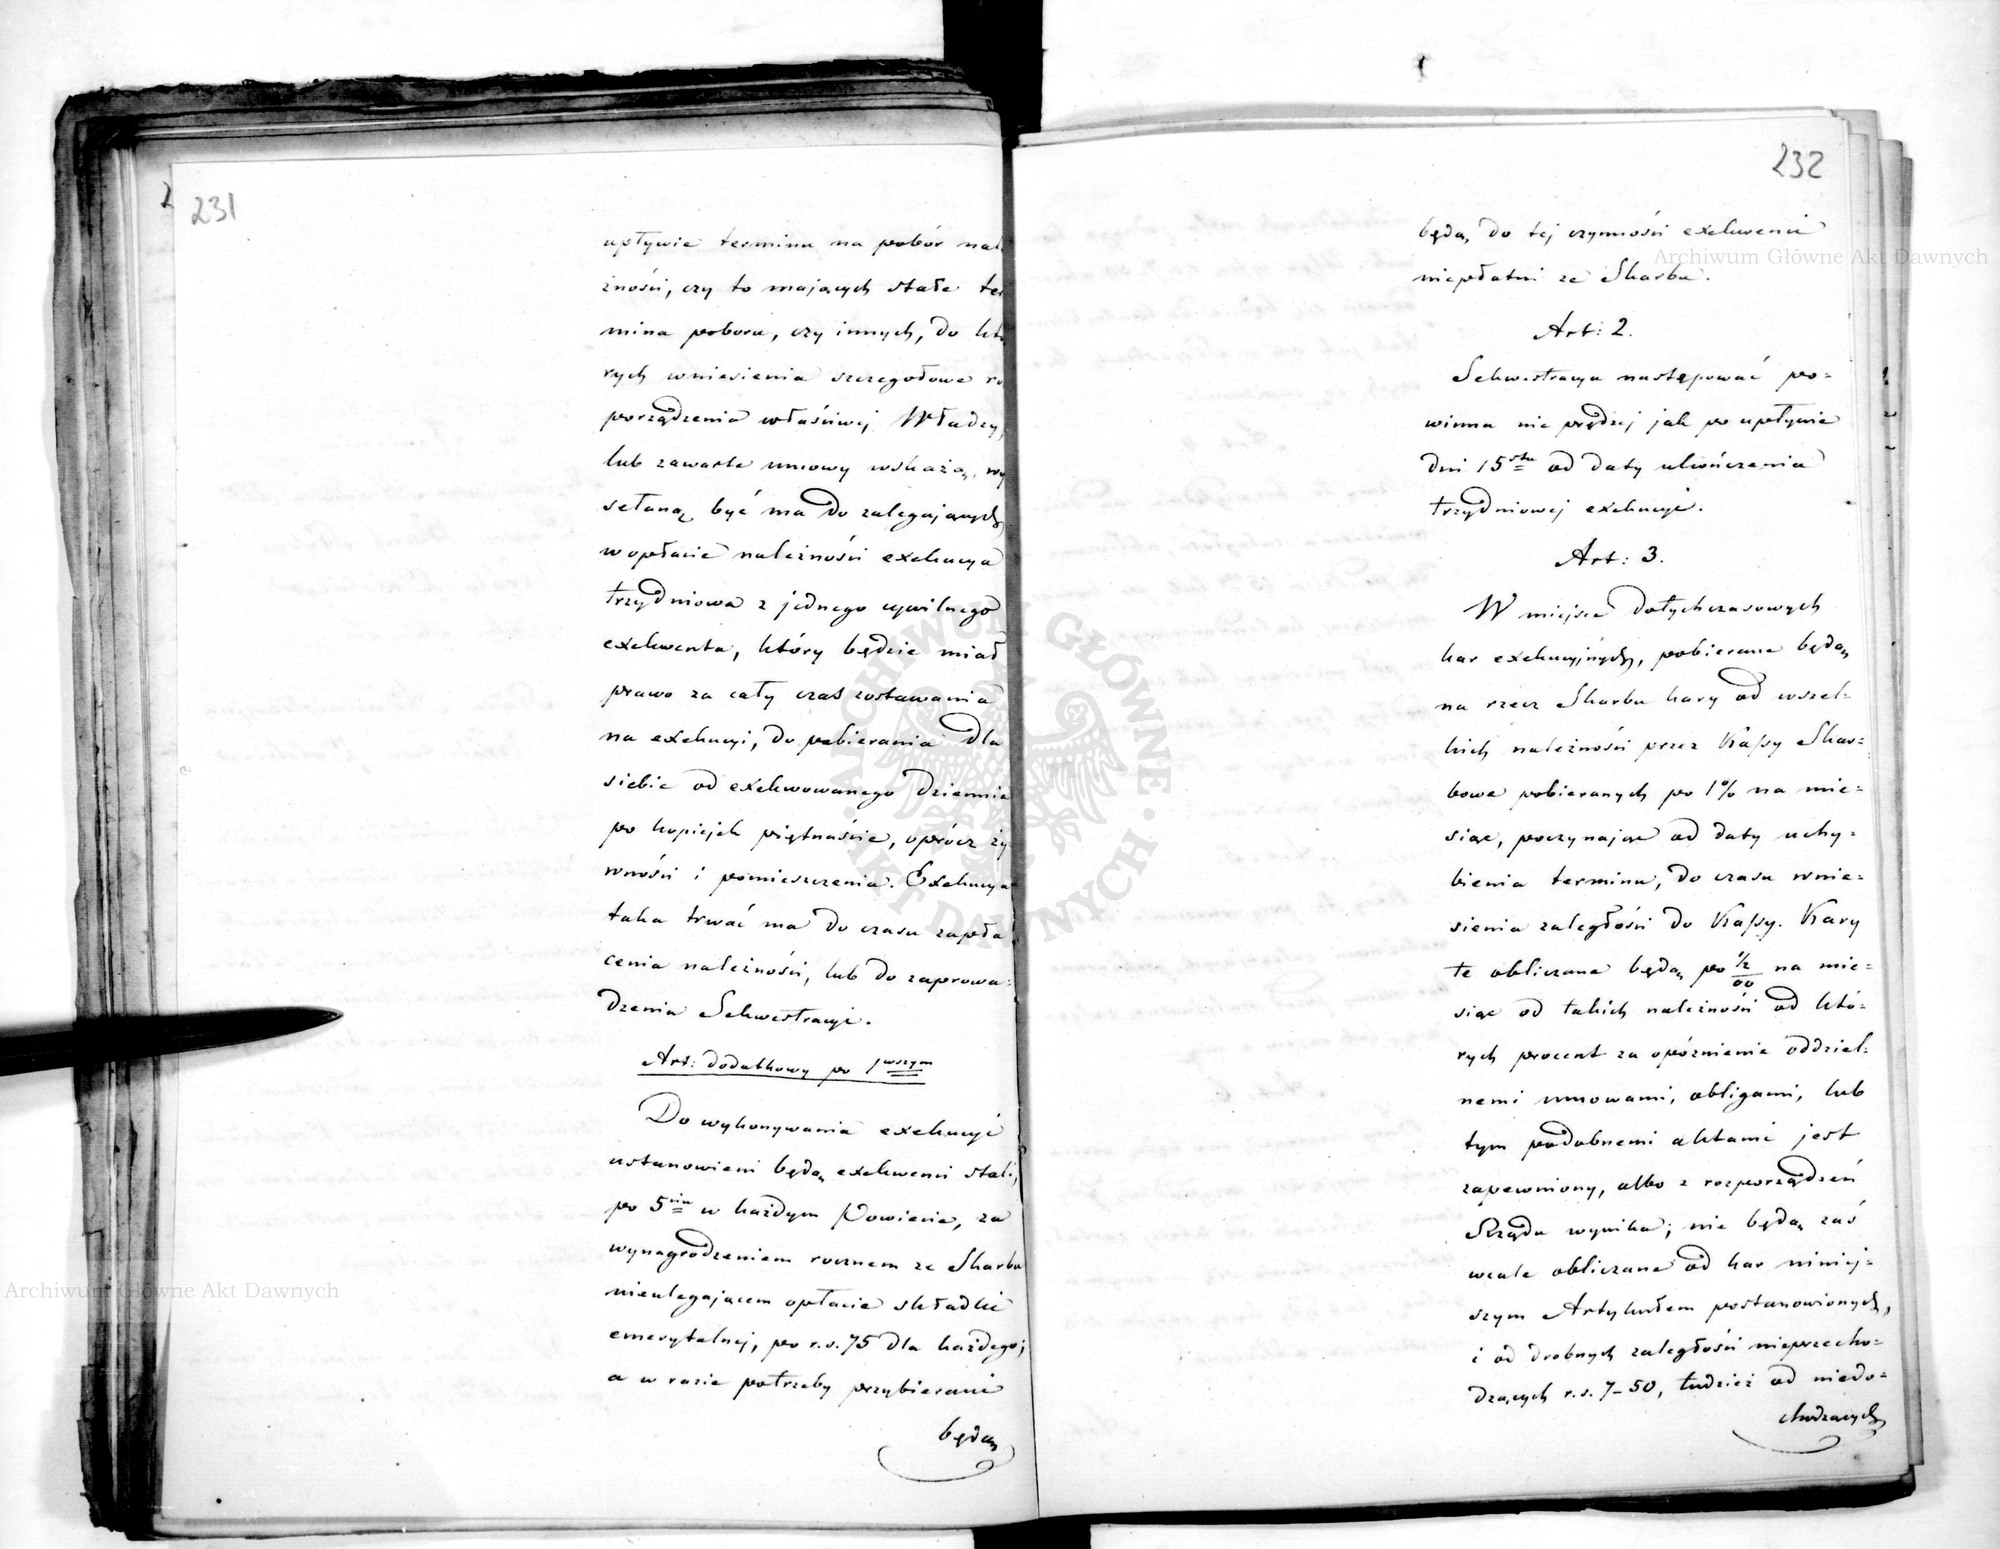 231
upływie terminu na pobór nale
żności, czy to mających stałe ter
mina poboru, czy innych, do któ
rych wniesienia szczegółowe ro
porządzenia właściwej Władzy,
lub zawarte umowy wskażą, wy
słaną być ma do zalegających
w opłacie należności exekucya
trzydniowa z jednego cywilnego
exekwenta, który będzie miał
prawo za cały czas zostawania
na exekucyi, do pobierania dla
siebie od exekwowanego dziennie
po kopiejek piętnaście, oprócz ży
wności i pomieszczenia. Exekucya
taka trwać ma do czasu zapła
cenia należności, lub do zaprowa-
dzenia Sekwestracyi.
Art: dodatkowy po 1wszym
Do wykonywania exekucyi
ustanowieni będą exekwenci stali,
po 5ciu w każdym Powiecie, za
wynagrodzeniem rocznem ze Skarbu
nieulegającem opłacie składki
emerytalnej, po r.s. 75 dla każdego;
a w razie potrzeby przybierani
będą
232
będą, do tej czynności exekwenci
niepłatni ze Skarbu.
Art: 2.
Sekwestracya następować po-
winna nie prędzej jak po upływie
dni 15stu od daty ukończenia
trzydniowej exekucyi.
Art: 3.
W miejsce dotychczasowych
kar exekucyjnych, pobierane będą
na rzecz Skarbu kary od wszel-
kich należności przez Kassy Skar-
bowe pobieranych po 1% na mie-
siąc, poczynając od daty uchy-
bienia terminu, do czasu wnie-
sienia zaległości do Kassy. Kary
te obliczane będą po ½/00 na mie-
siąc od takich należności od któ-
rych procent za opóźnienie oddziel-
nemi umowami, obligami, lub
tym podobnemi aktami jest
zapewniony, albo z rozporządzeń
Rządu wynika; nie będą zaś
wcale obliczane od kar niniej-
szym Artykułem postanowionych,
i od drobnych zaległości nieprzecho-
dzących r.s. 7-50, tudzież od niedo-
chodzących
Archiwum Główne Akt Dawnych
Archiwum Główne Akt Dawnych
ARCHIWUM GŁÓWNE · AKT DAWNYCH ·